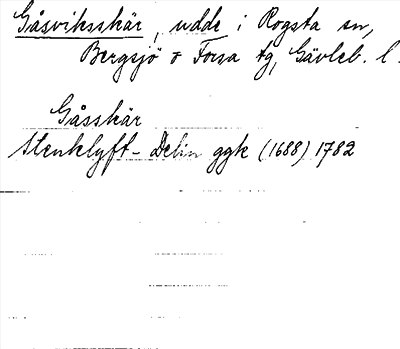 Gåsviksskär, udde i Rogsta sn,
Bergsjö o Forsa tg, Gävleb. l.
Gåsskär
Stenklyft-Delin ggk (1688) 1782